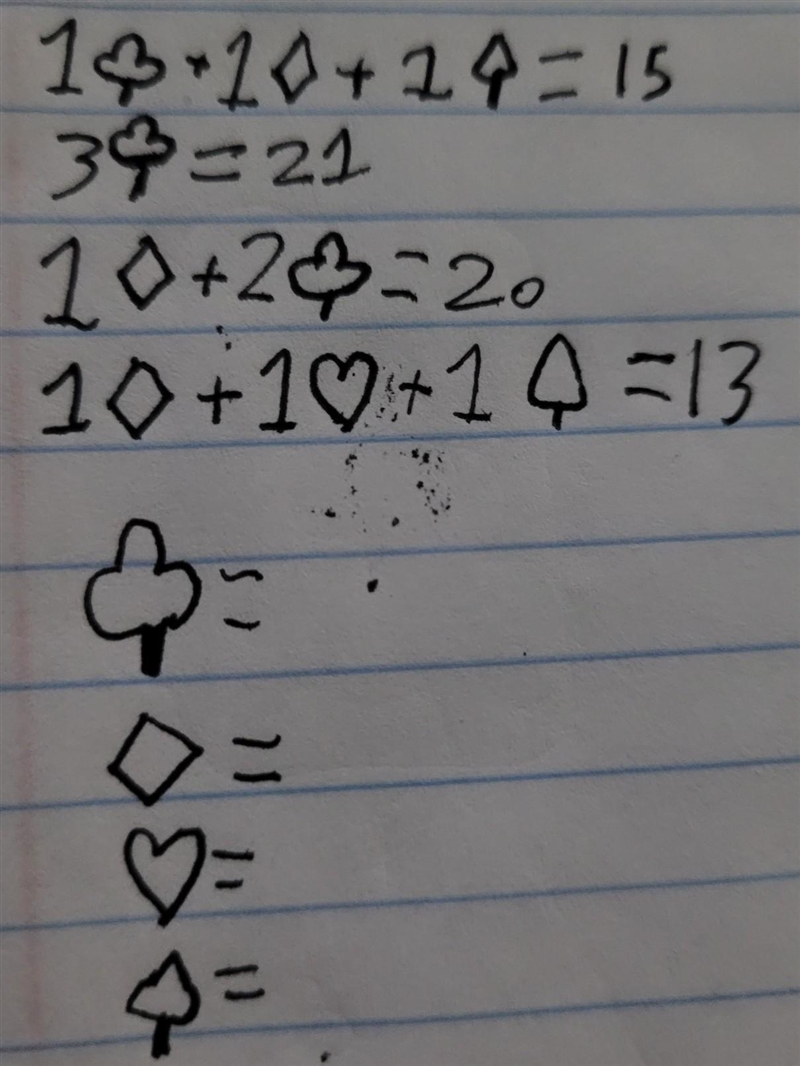 1♣+1♦+1♠=15
3♣=21
1♦+2♣=20
1♦+1♥+1♠=13
♣=
♦=
♥=
♠=